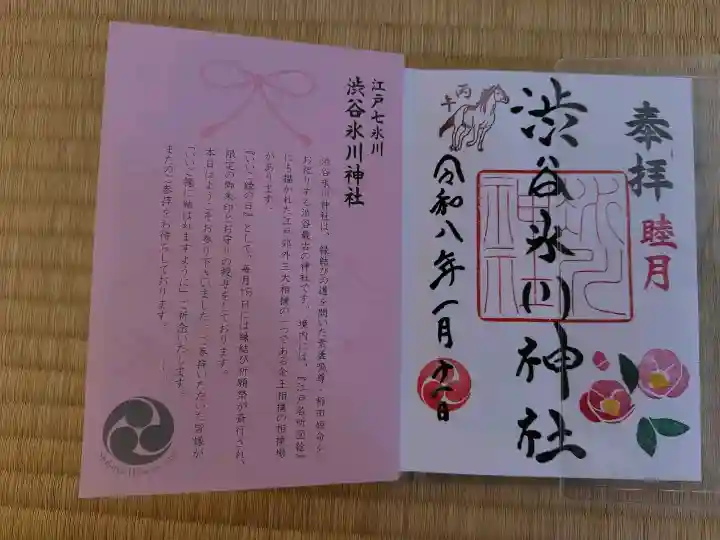 江戸七氷川
渋谷氷川神社
渋谷氷川神社は、縁結びの道を開いた素盞嗚尊・稲田姫命を
お祀りする渋谷最古の神社です。境内には、『江戸名所図絵』
にも描かれた江戸郊外三大相撲の一つである金王相撲の相撲場
があります。
『いい縁の日』として、毎月15日には縁結び祈願祭が斎行され、
限定の御朱印とお守りの授与をしております。
本日はようこそお参り下さいました。ご参拝いただいた皆様が
「いいご縁に結ばれますように」ご祈念いたします。
またのご参拝をお待ちしております。
奉拝
睦月
氷川
神社
渋谷氷川神社
丙
午
令和八年一月十一日